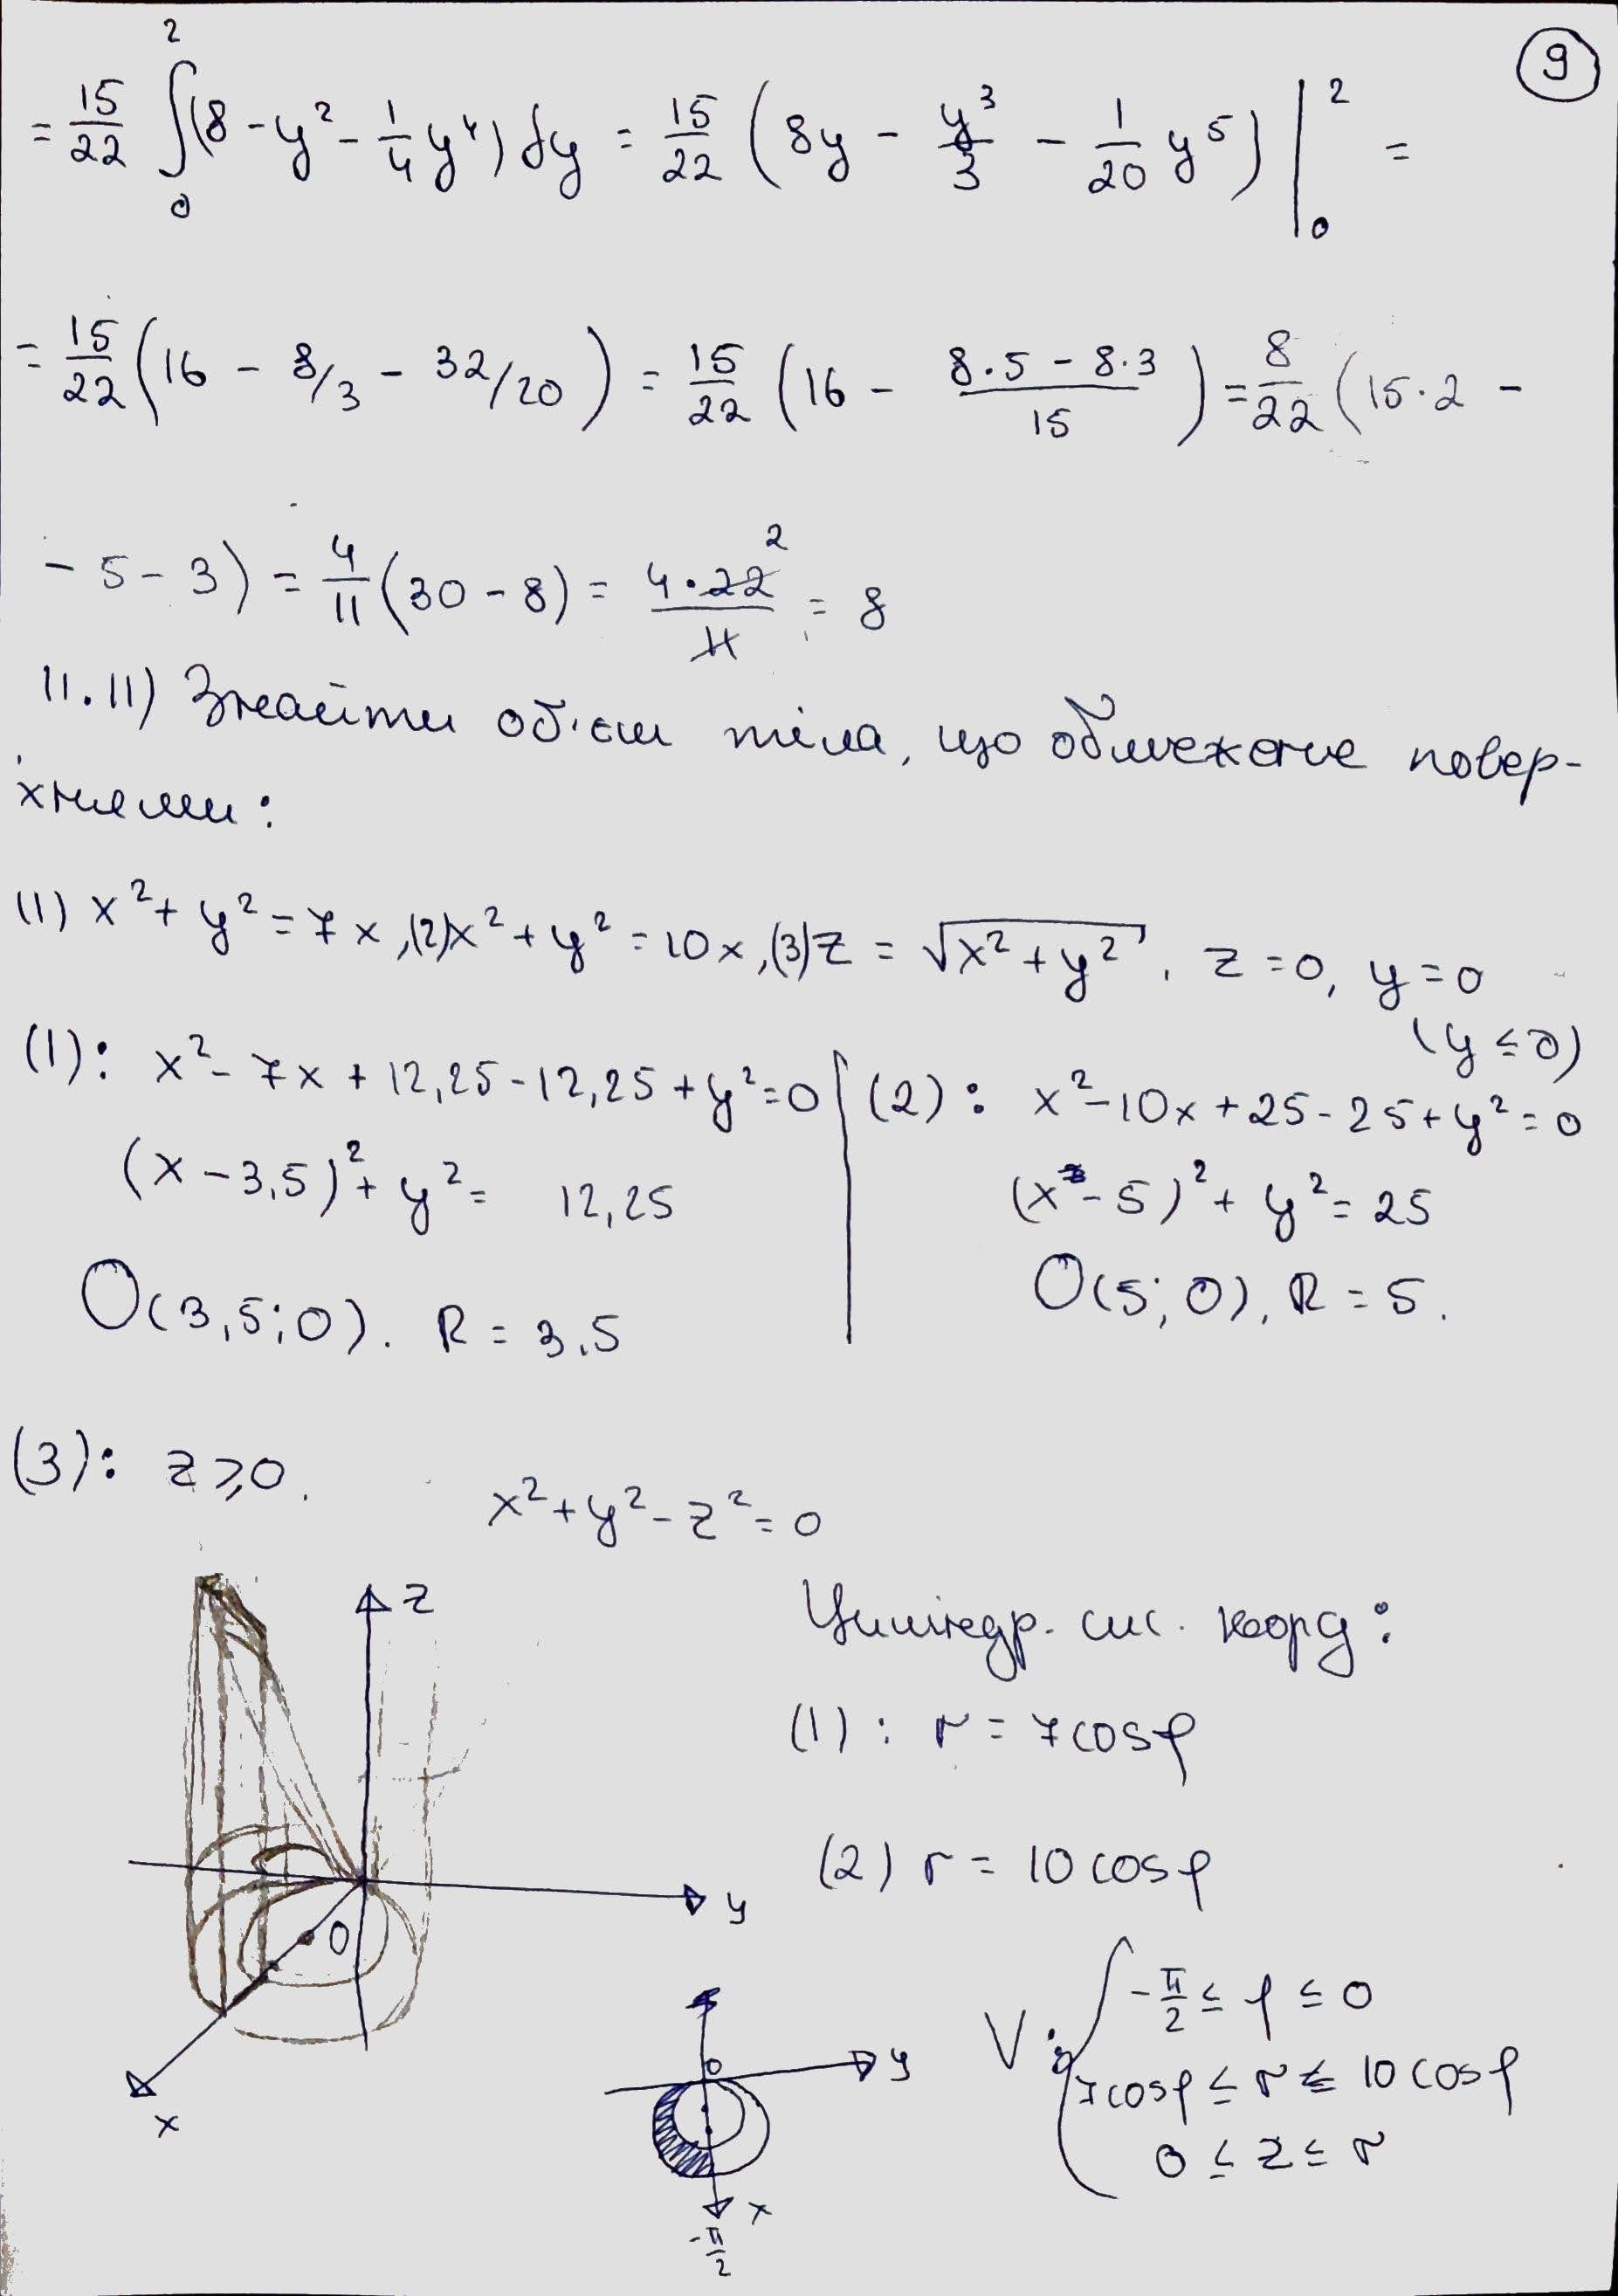 9
= 15/22 ∫₀² (8 - y² - 1/4 y⁴) dy = 15/22 (8y - y³/3 - 1/20 y⁵) |₀² =
= 15/22 (16 - 8/3 - 32/20) = 15/22 (16 - (8·5 - 8·3)/15) = 8/22 (15·2 -
- 5 - 3) = 4/11 (30 - 8) = 4·22/11 2 = 8
11.11) Знайти об'єм тіла, що обмежене повер-
хнями:
(1) x² + y² = 7x, (2) x² + y² = 10x, (3) z = √(x² + y²), z = 0, y = 0
(y ≤ 0)
(1): x² - 7x + 12,25 - 12,25 + y² = 0
(x - 3,5)² + y² = 12,25
O(3,5; 0). R = 3.5
(2): x² - 10x + 25 - 25 + y² = 0
(x - 5)² + y² = 25
O(5; 0), R = 5.
(3): z ⩾ 0.
x² + y² - z² = 0
z
y
O
x
Циліндр. сис. коорд:
(1): r = 7cosφ
(2) r = 10cosφ
V: { -π/2 ≤ φ ≤ 0
7cosφ ≤ r ≤ 10cosφ
0 ≤ z ≤ r
0
y
x
-π/2